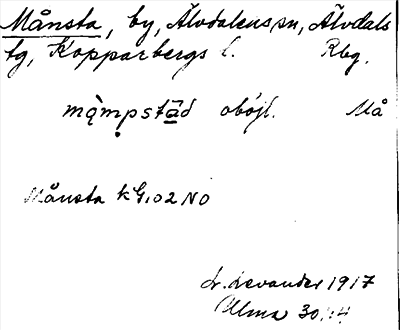 Månsta, by, Älvdalens sn, Älvdals
tg, Kopparbergs l. Rbg.
mąmpstād oböjl. Må
Månsta kG.02 NO
L. Levander 1917
Ulma 301:4